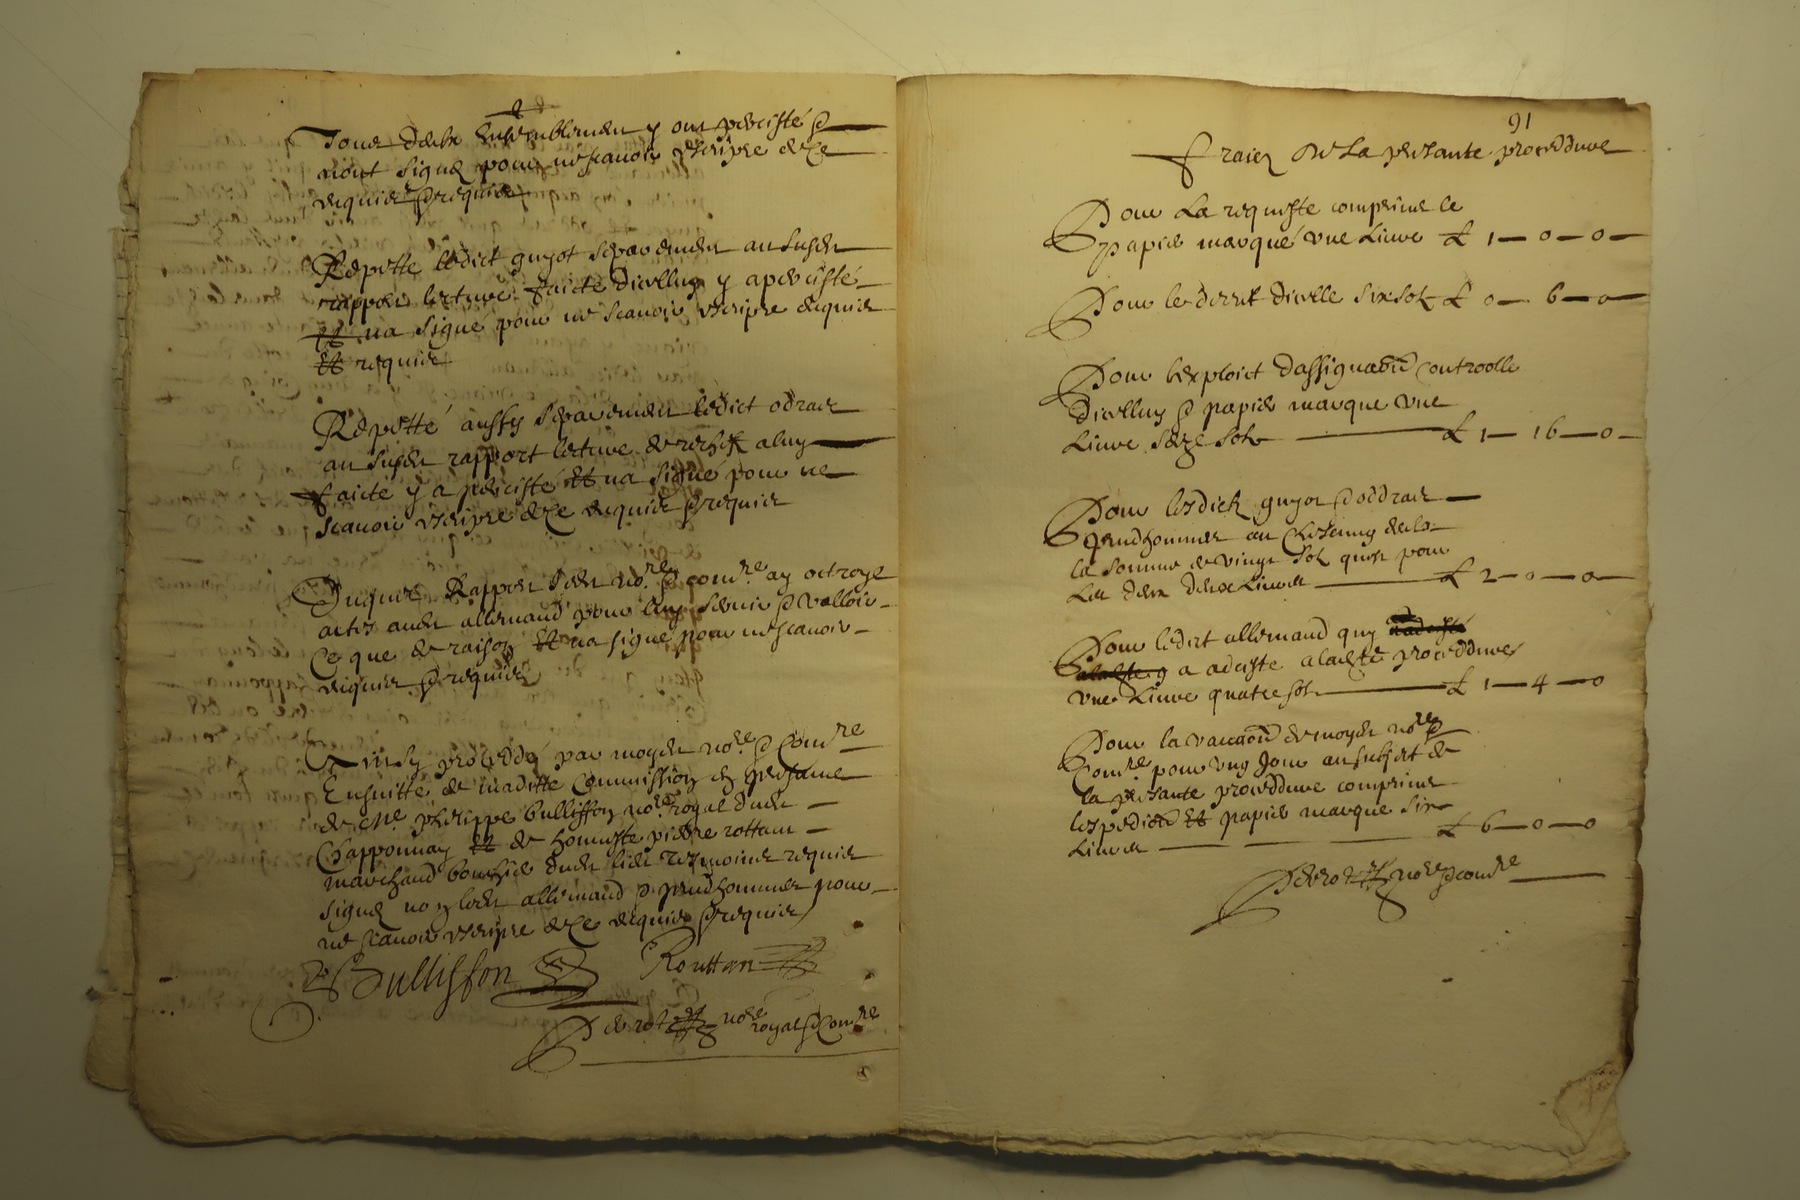 Tous deux ensemblement y ont percisté &
niont signé pour ne scavoir escripre de ce
enquier & requier
Repetté ledict guyot separement au susdit
rapport lecture faicte dicelluy y a percisté
et na signé pour ne scavoir escripre enquier
et requier
Repetté aussy separement ledict odrat
au susdit rapport lecture de rechef a luy
faicte y a percisté et na signé pour ne
scavoir escripre de ce enquier & requier
Duquel Rapport Sudit nore & comre ay octroyé
actes audit allemand pour luy servir & valloir
Ce que de raison et na signé pour ne scavoir
enquier & requier
Ainsy proceddé par moydit nore & Comre
Ensuitte de maditte Commission en presance
de Me phelippe bullisson nore royal dudit
Chapponnay et de honneste pierre rottan
marchand dudit lieu tesmoins requier
signé non ledit allemand & prudhommes pour
ne scavoir escripre de ce enquier & requier
Bullisson Routtan
nore royal & Comre
91
Fraiez de La presante proceddure
Pour La requeste comprins le
papier marqué une Livre £ 1 — 0 — 0
Pour le decret dicelle six solz £ 0 — 6 — 0
Pour lexploict dassignaon controolle
dicelluy & papier marque une
Livre seze solz £ 1 — 16 — 0
Pour lesdictz guyot & oddrat
prudhommes au Chascung deulx
la somme de vingt solz quest pour
Les deux deux Livres £ 2 — 0 — 0
Pour ledict allemand quy
a adciste a ladite proceddure
une Livre quatre solz £ 1 — 4 — 0
Pour la vaccaon de moydit nore &
Comre pour ung Jour au subject de
la presante proceddure comprins
lexpedion et papier marque six
Livres £ 6 — 0 — 0
nore & comre